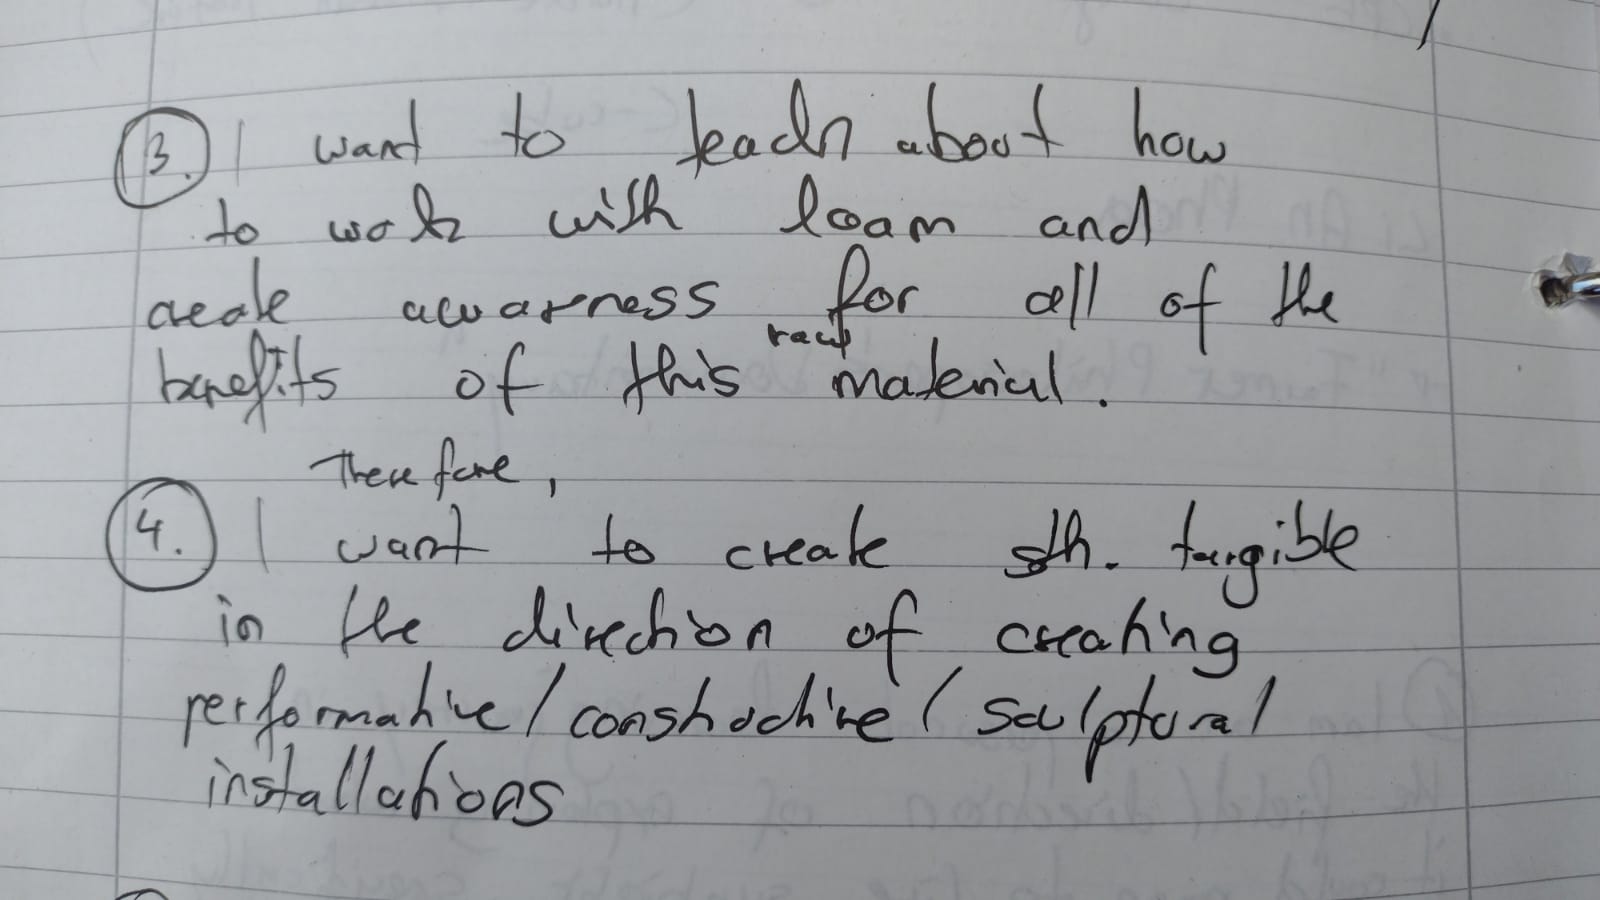 3. I want to teach about how
to work with loam and
create awareness for all of the
raw
benefits of this material.
Therefore,
4. I want to create sth. tangible
in the direction of creating
performative/constructive/sculptural
installations